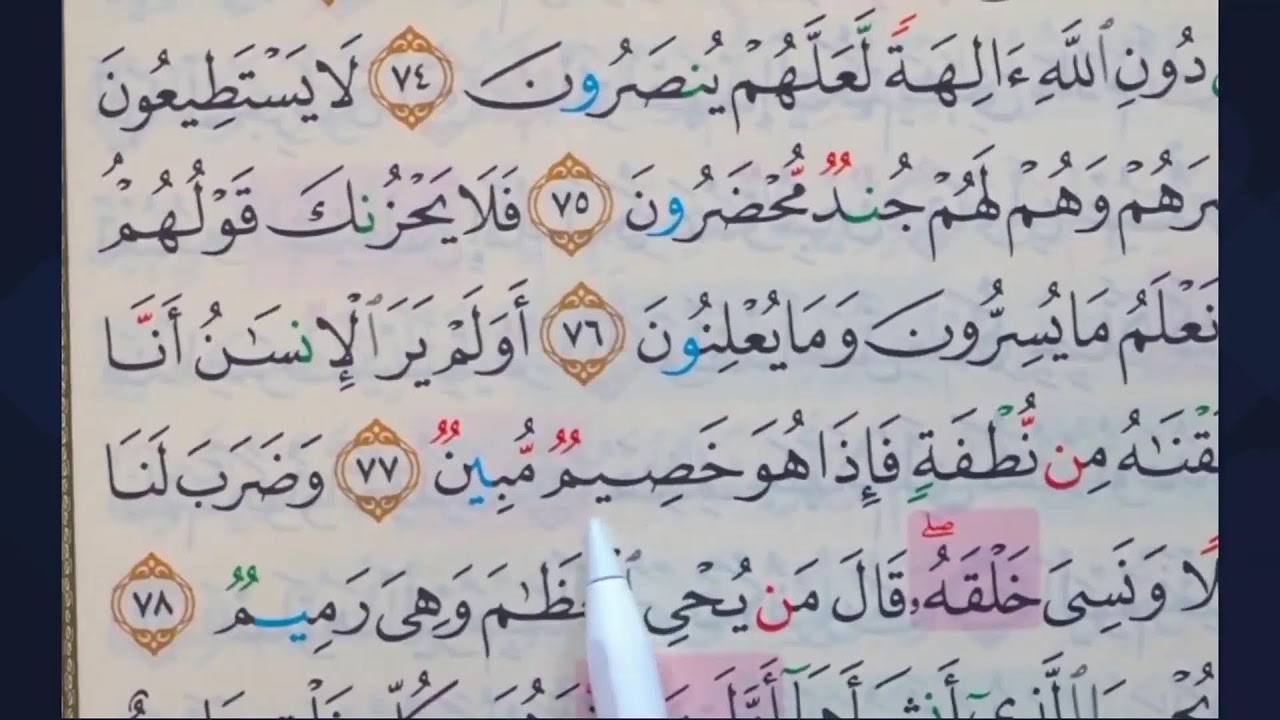 دُونِ ٱللَّهِ ءَالِهَةً لَّعَلَّهُمْ يُنصَرُونَ ٧٤ لَا يَسْتَطِيعُونَ
وَهُمْ لَهُمْ جُندٌ مُّحْضَرُونَ ٧٥ فَلَا يَحْزُنكَ قَوْلُهُمْ
نَعْلَمُ مَا يُسِرُّونَ وَمَا يُعْلِنُونَ ٧٦ أَوَلَمْ يَرَ ٱلْإِنسَٰنُ أَنَّا
مِن نُّطْفَةٍ فَإِذَا هُوَ خَصِيمٌ مُّبِينٌ ٧٧ وَضَرَبَ لَنَا
وَنَسِىَ خَلْقَهُۥ ۖ قَالَ مَن يُحْىِ وَهِىَ رَمِيمٌ ٧٨